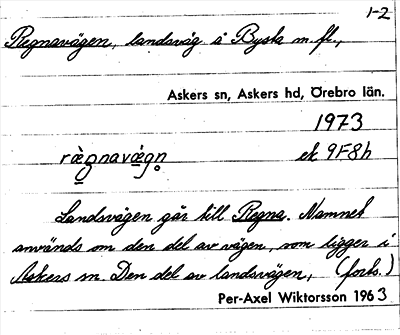 1-2
Regnavägen, landsväg å Byska m.fl.,
Askers sn, Askers hd, Örebro län.
1973
ræ̀gnavæ̀gn̥ ek 9F8h
Landsvägen går till Regna. Namnet
används om den del av vägen, som ligger i
Askers sn. Den del av landsvägen, (forts.)
Per-Axel Wiktorsson 1963